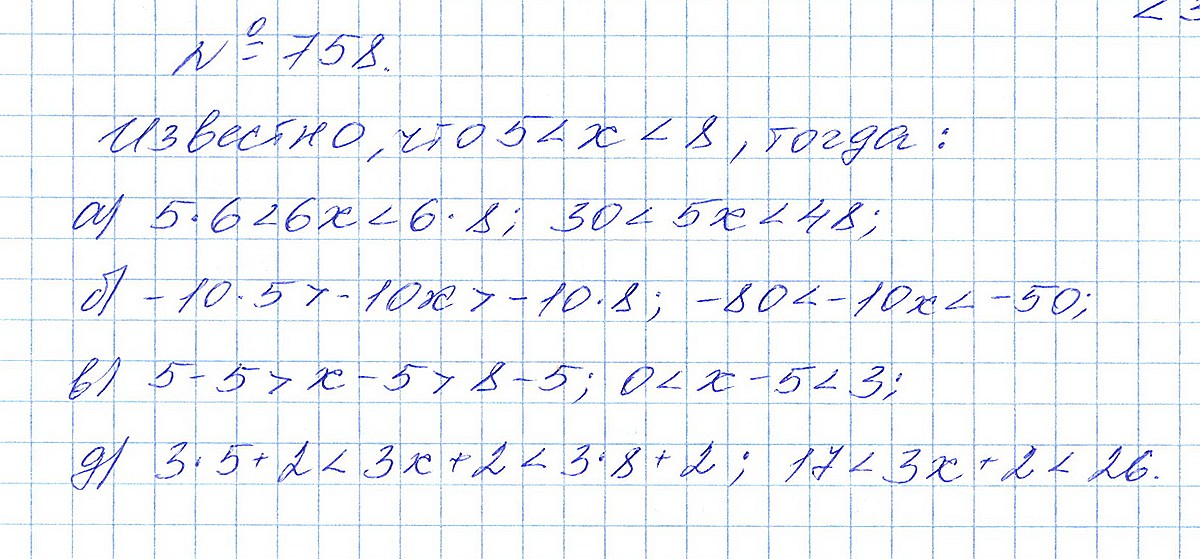 <3
№ 758.
Известно, что 5 < x < 8, тогда:
а) 5·6 < 6x < 6·8; 30 < 5x < 48;
б) -10·5 > -10x > -10·8; -80 < -10x < -50;
в) 5-5 > x-5 > 8-5; 0 < x-5 < 3;
д) 3·5+2 < 3x+2 < 3·8+2; 17 < 3x+2 < 26.